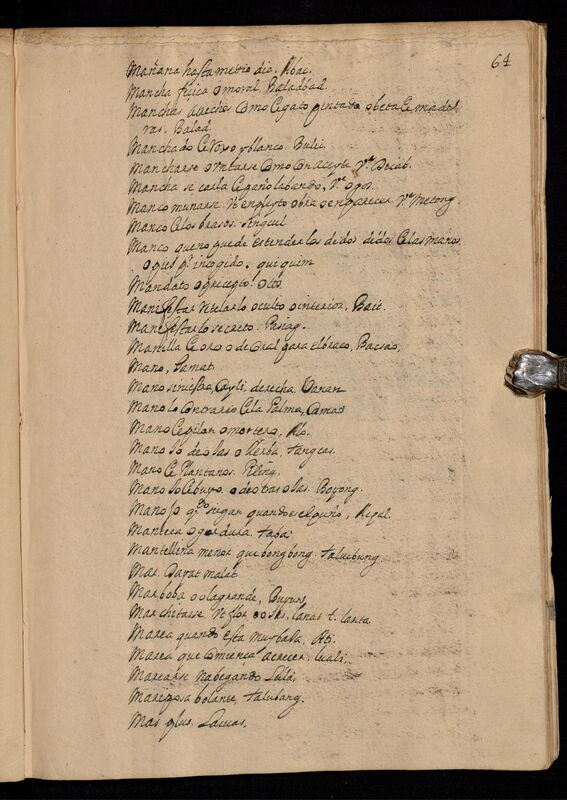 64
Mañana hasta medio dia. Abac.
Mancha fisica o moral. Baladbad.
Manchas anechos Como Cegato pintado o beta Ce ma de
ras. Balad
Manchado Ce Roxo y blanco. Bulii.
Mancharse o Vntarse Como Con aceyte. Vᵉ Decat.
Mancha se carla Cegaño labando, Vᵉ opos.
Manco munarse. Vᵗ en pleyto obra o en parecer, Vᵉ Metong.
Manco Celos brasos. Singcul
Manco que no puede estender los de dos Celas manos
o pies pᵣ incogido. qui quim
Mandato o precepto. Otos
Manifestar Revelar lo oculto o interior, Baie.
Manifestar lo secreto. Pisiag.
Manilla Ce oro o de Coral para el braço, Bacsao,
Mano, Gamat
Mano siniestra, Cayli, derecha. Vanan
Mano lo Contrario Cela Palma, Camat
Mano Ce pilon o mortero, Alo.
Mano Jo de olas o llerba, tangcas.
Mano Ce Plantanos. Piling.
Mano Jo Cebuyo. o de otras olas. Boyong.
Mano Jo qᵈᵒ su gar quando es el puño, Kepal.
Manteca o gordura. taba:
Mantellina menor que bongbong. talucbung
Mar. Dayat malat
Mar boba o ola grande, Buyuns,
Marchitarse Vᵗ flor o Ojas, Lanat t. lanta
Marea quando esta muy baja, Ati.
Marea que Comiença acrecer, Luali;
Marearse nabegando Lula,
Mariposa bolante, talubang.
Mas, plus. Lacuas,